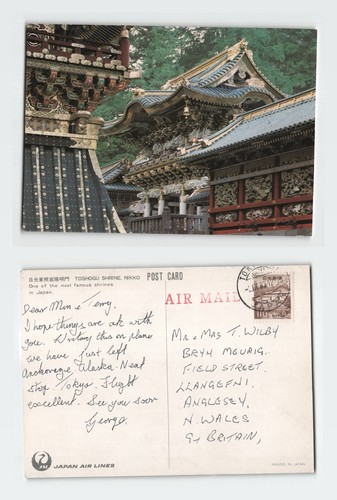 日光東照宮陽明門 TOSHOGU SHRINE, NIKKO
One of the most famous shrines
in Japan.
POST CARD
AIR MAIL
Dear Min & Terry.
I hope things are ok with
you. Writing this on plane
we have just left
Anchorage Alaska. Next
stop. Tokyo. Flight
excellent. See you soon
George.
Mr & Mrs T. WILBY
BRYN MEURIG.
FIELD STREET.
LLANGEFNI.
ANGLESEY.
N. WALES
Gt BRITAIN,
JAL
JAPAN AIR LINES
PRINTED IN JAPAN